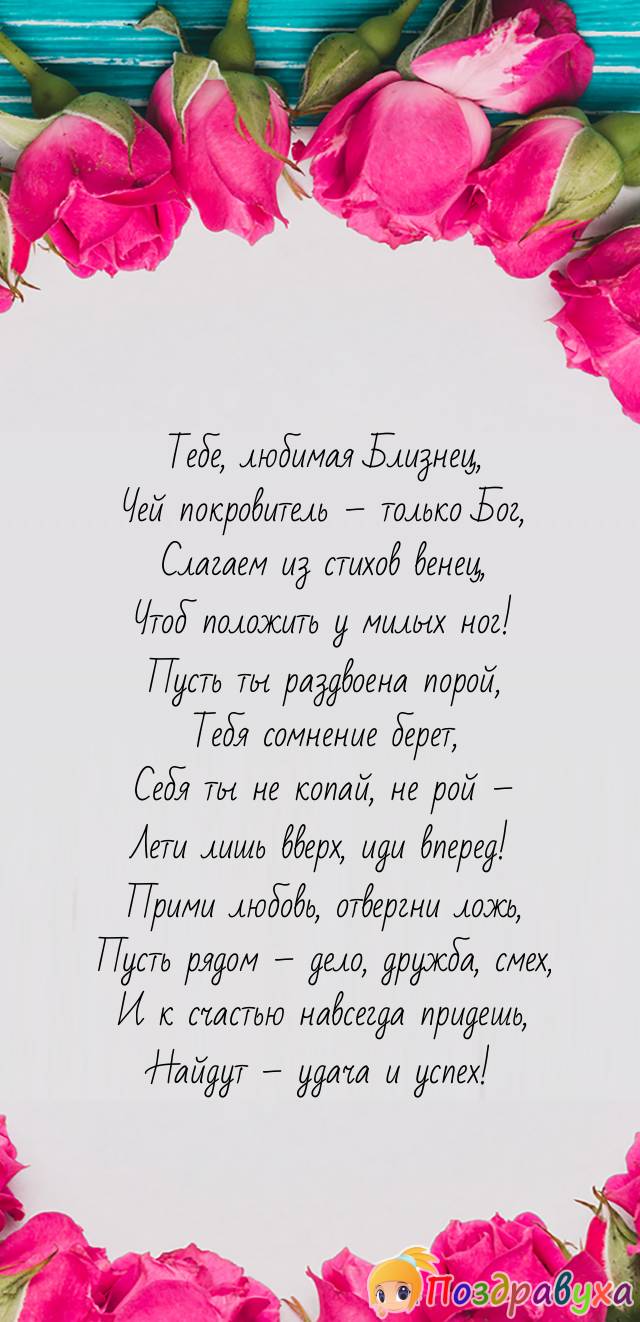 Тебе, любимая Близнец,
Чей покровитель – только Бог,
Слагаем из стихов венец,
Чтоб положить у милых ног!
Пусть ты раздвоена порой,
Тебя сомнение берет,
Себя ты не копай, не рой –
Лети лишь вверх, иди вперед!
Прими любовь, отвергни ложь,
Пусть рядом – дело, дружба, смех,
И к счастью навсегда придешь,
Найдут – удача и успех!
Поздравуха